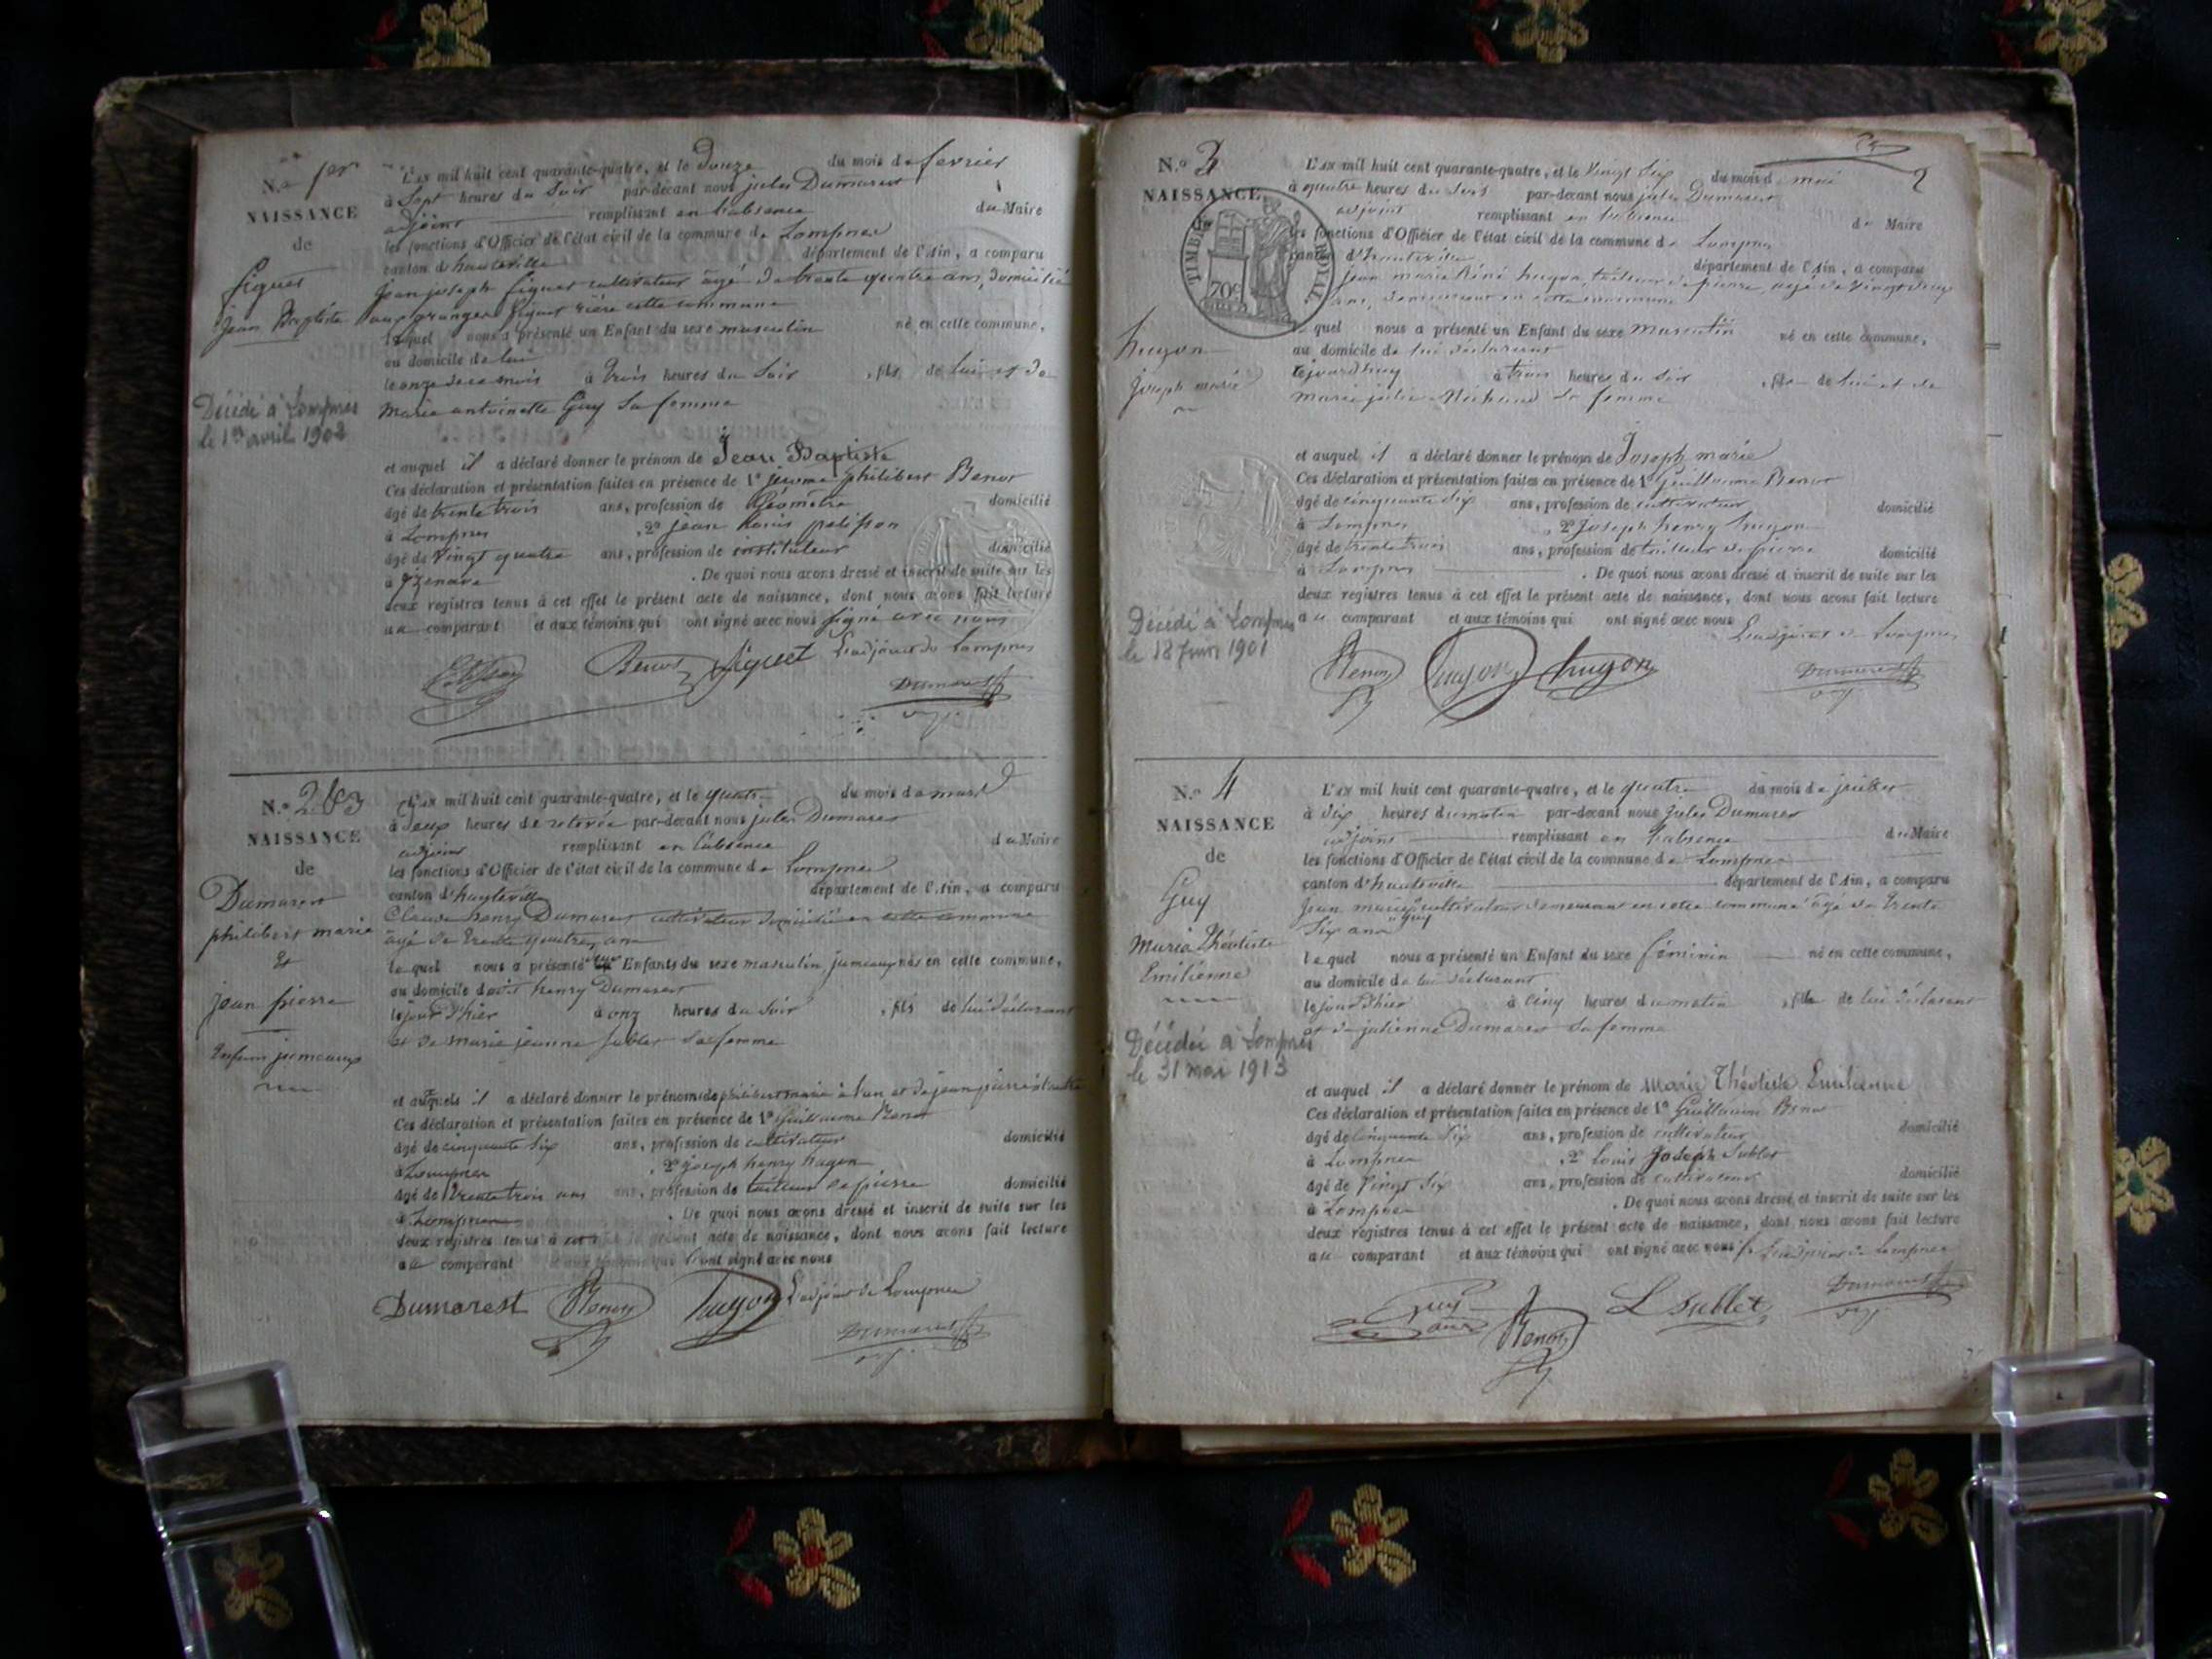 N.o 1er
NAISSANCE
de
Jean Baptiste
Décédé à Lompnes
le 1er avril 1902
L'AN mil huit cent quarante-quatre, et le Douze du mois de fevrier
à Sept heures du Soir par-devant nous jules Dumarest
adjoint remplissant en l'absence du Maire
les fonctions d'Officier de l'état civil de la commune de Lompnes
canton d'hauteville département de l'Ain, a comparu
jean joseph cultivateur âgé de trente quatre ans, domicilié
aux granges rière cette commune
lequel nous a présenté un Enfant du sexe masculin né en cette commune,
au domicile de lui
le onze de ce mois à Trois heures du Soir , fils de lui et de
Marie antoinette Guy Sa femme
et auquel il a déclaré donner le prénom de Jean Baptiste
Ces déclaration et présentation faites en présence de 1o jerome philibert
âgé de trente trois ans, profession de Géometre domicilié
à Lompnes , 2o jean Louis
âgé de Vingt quatre ans, profession de instituteur domicilié
à . De quoi nous avons dressé et inscrit de suite sur les
deux registres tenus à cet effet le présent acte de naissance, dont nous avons fait lecture
au comparant et aux témoins qui ont signé avec nous signé avec nous
L'adjoint de Lompnes
Dumarest
N.o 2 et 3
NAISSANCE
de
Dumarest
philibert marie
Et
jean pierre
Enfans jumeaux
L'AN mil huit cent quarante-quatre, et le quatre du mois de mars
à Deux heures de relevée par-devant nous jules Dumarest
adjoint remplissant en l'absence du Maire
les fonctions d'Officier de l'état civil de la commune de Lompnes
canton d'hauteville département de l'Ain, a comparu
Claude henry Dumarest cultivateur domicilié en cette commune
âgé de trente quatre ans
lequel nous a présenté deux Enfants du sexe masculin jumeaux nés en cette commune,
au domicile dudit henry Dumarest
le jour d'hier à onze heures du Soir , fils de lui déclarant
et de marie jeanne Sublet Sa femme
et auxquels il a déclaré donner le prénom de philibert marie à l'un et de jean pierre à l'autre
Ces déclaration et présentation faites en présence de 1o Guillaume
âgé de cinquante Six ans, profession de cultivateur domicilié
à Lompnes , 2o joseph henry hugon
âgé de trente trois ans ans, profession de tailleur de pierre domicilié
à Lompnes . De quoi nous avons dressé et inscrit de suite sur les
deux registres tenus à cet effet le présent acte de naissance, dont nous avons fait lecture
au comparant et aux témoins qui ont signé avec nous
L'adjoint de Lompnes
Dumarest hugon Dumarest
N.o 3
NAISSANCE
TIMBRE ROYAL
70c
hugon
joseph marie
Décédé à Lompnes
le 18 Juin 1901
2
L'AN mil huit cent quarante-quatre, et le Vingt Six du mois de mai
à quatre heures du Soir par-devant nous jules Dumarest
adjoint remplissant en l'absence du Maire
les fonctions d'Officier de l'état civil de la commune de Lompnes
canton d'hauteville département de l'Ain, a comparu
jean marie Réné hugon, tailleur de pierre, agé de Vingt deux
ans, demeurant en cette commune
lequel nous a présenté un Enfant du sexe Masculin né en cette commune,
au domicile de lui déclarant
ce jourd'huy à trois heures du Soir , fils de lui et de
marie julie Michaud Sa femme
et auquel il a déclaré donner le prénom de Joseph marie
Ces déclaration et présentation faites en présence de 1o Guillaume
âgé de cinquante Six ans, profession de cultivateur domicilié
à Lompnes , 2o Joseph henry hugon
âgé de trente trois ans, profession de tailleur de pierre domicilié
à Lompnes . De quoi nous avons dressé et inscrit de suite sur les
deux registres tenus à cet effet le présent acte de naissance, dont nous avons fait lecture
au comparant et aux témoins qui ont signé avec nous
L'adjoint de Lompnes
hugon hugon Dumarest
N.o 4
NAISSANCE
de
Guy
Maria Théotiste
Emilienne
Décédée à Lompnes
le 31 mai 1913
L'AN mil huit cent quarante-quatre, et le quatre du mois de juillet
à Six heures du matin par-devant nous Jules Dumarest
adjoint remplissant en l'absence du Maire
les fonctions d'Officier de l'état civil de la commune de Lompnes
canton d'hauteville département de l'Ain, a comparu
Jean marie Guy cultivateur demeurant en cette commune agé de Trente
Six ans
lequel nous a présenté un Enfant du sexe féminin né en cette commune,
au domicile de lui déclarant
le jour d'hier à cinq heures du matin , fille de lui déclarant
et de julienne Dumarest Sa femme
et auquel il a déclaré donner le prénom de Marie Théotiste Emilienne
Ces déclaration et présentation faites en présence de 1o Guillaume
âgé de Cinquante Six ans, profession de cultivateur domicilié
à Lompnes , 2o Louis Joseph Sublet
âgé de Vingt Six ans, profession de cultivateur domicilié
à Lompnes . De quoi nous avons dressé et inscrit de suite sur les
deux registres tenus à cet effet le présent acte de naissance, dont nous avons fait lecture
au comparant et aux témoins qui ont signé avec nous L'adjoint de Lompnes
Guy L Sublet Dumarest